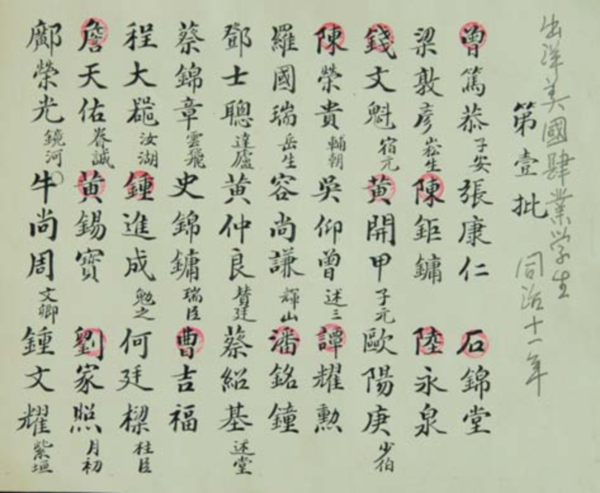 出洋美國肄業学生
同治十一年
第壹批
曾篤恭子安 張康仁 石錦堂
梁敦彦崧生 陳鉅鏞 陸永泉
錢文魁 黄開甲子元 歐陽庚少伯
陳榮貴輔朝 吳仰曾述三 譚耀勲
羅國瑞岳生 容尚謙輝山 潘銘鐘
鄧士聰達廬 黄仲良贊廷 蔡紹基述堂
蔡錦章雲飛 史錦鏞瑞臣 曹吉福
程大噐汝湖 鍾進成勉之 何廷樑桂臣
詹天佑眷誠 黄錫寶 劉家照月初
鄺榮光鏡河 牛尚周文卿 鍾文耀紫垣